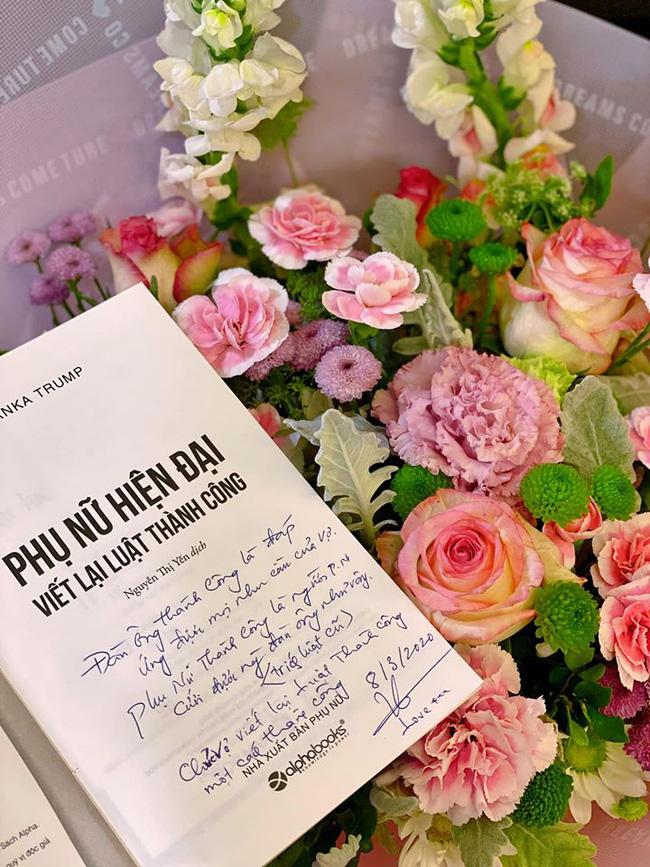 COME TURE
DREAMS CO
COME TURE
DREAMS
COME TURE
ANKA TRUMP
PHỤ NỮ HIỆN ĐẠI
VIẾT LẠI LUẬT THÀNH CÔNG
Nguyễn Thị Yến dịch
Đàn ông thành công là đáp
ứng được mọi nhu cầu của vợ.
Phụ Nữ thành công là người P.N
cưới được ng đàn ông như vậy.
(triết luật cũ)
Chúc vợ viết lại luật thành công
một cách thành công
8/3/2020
Love
NHÀ XUẤT BẢN PHỤ NỮ
alphabooks
Sách Alpha.
quý vị độc giả